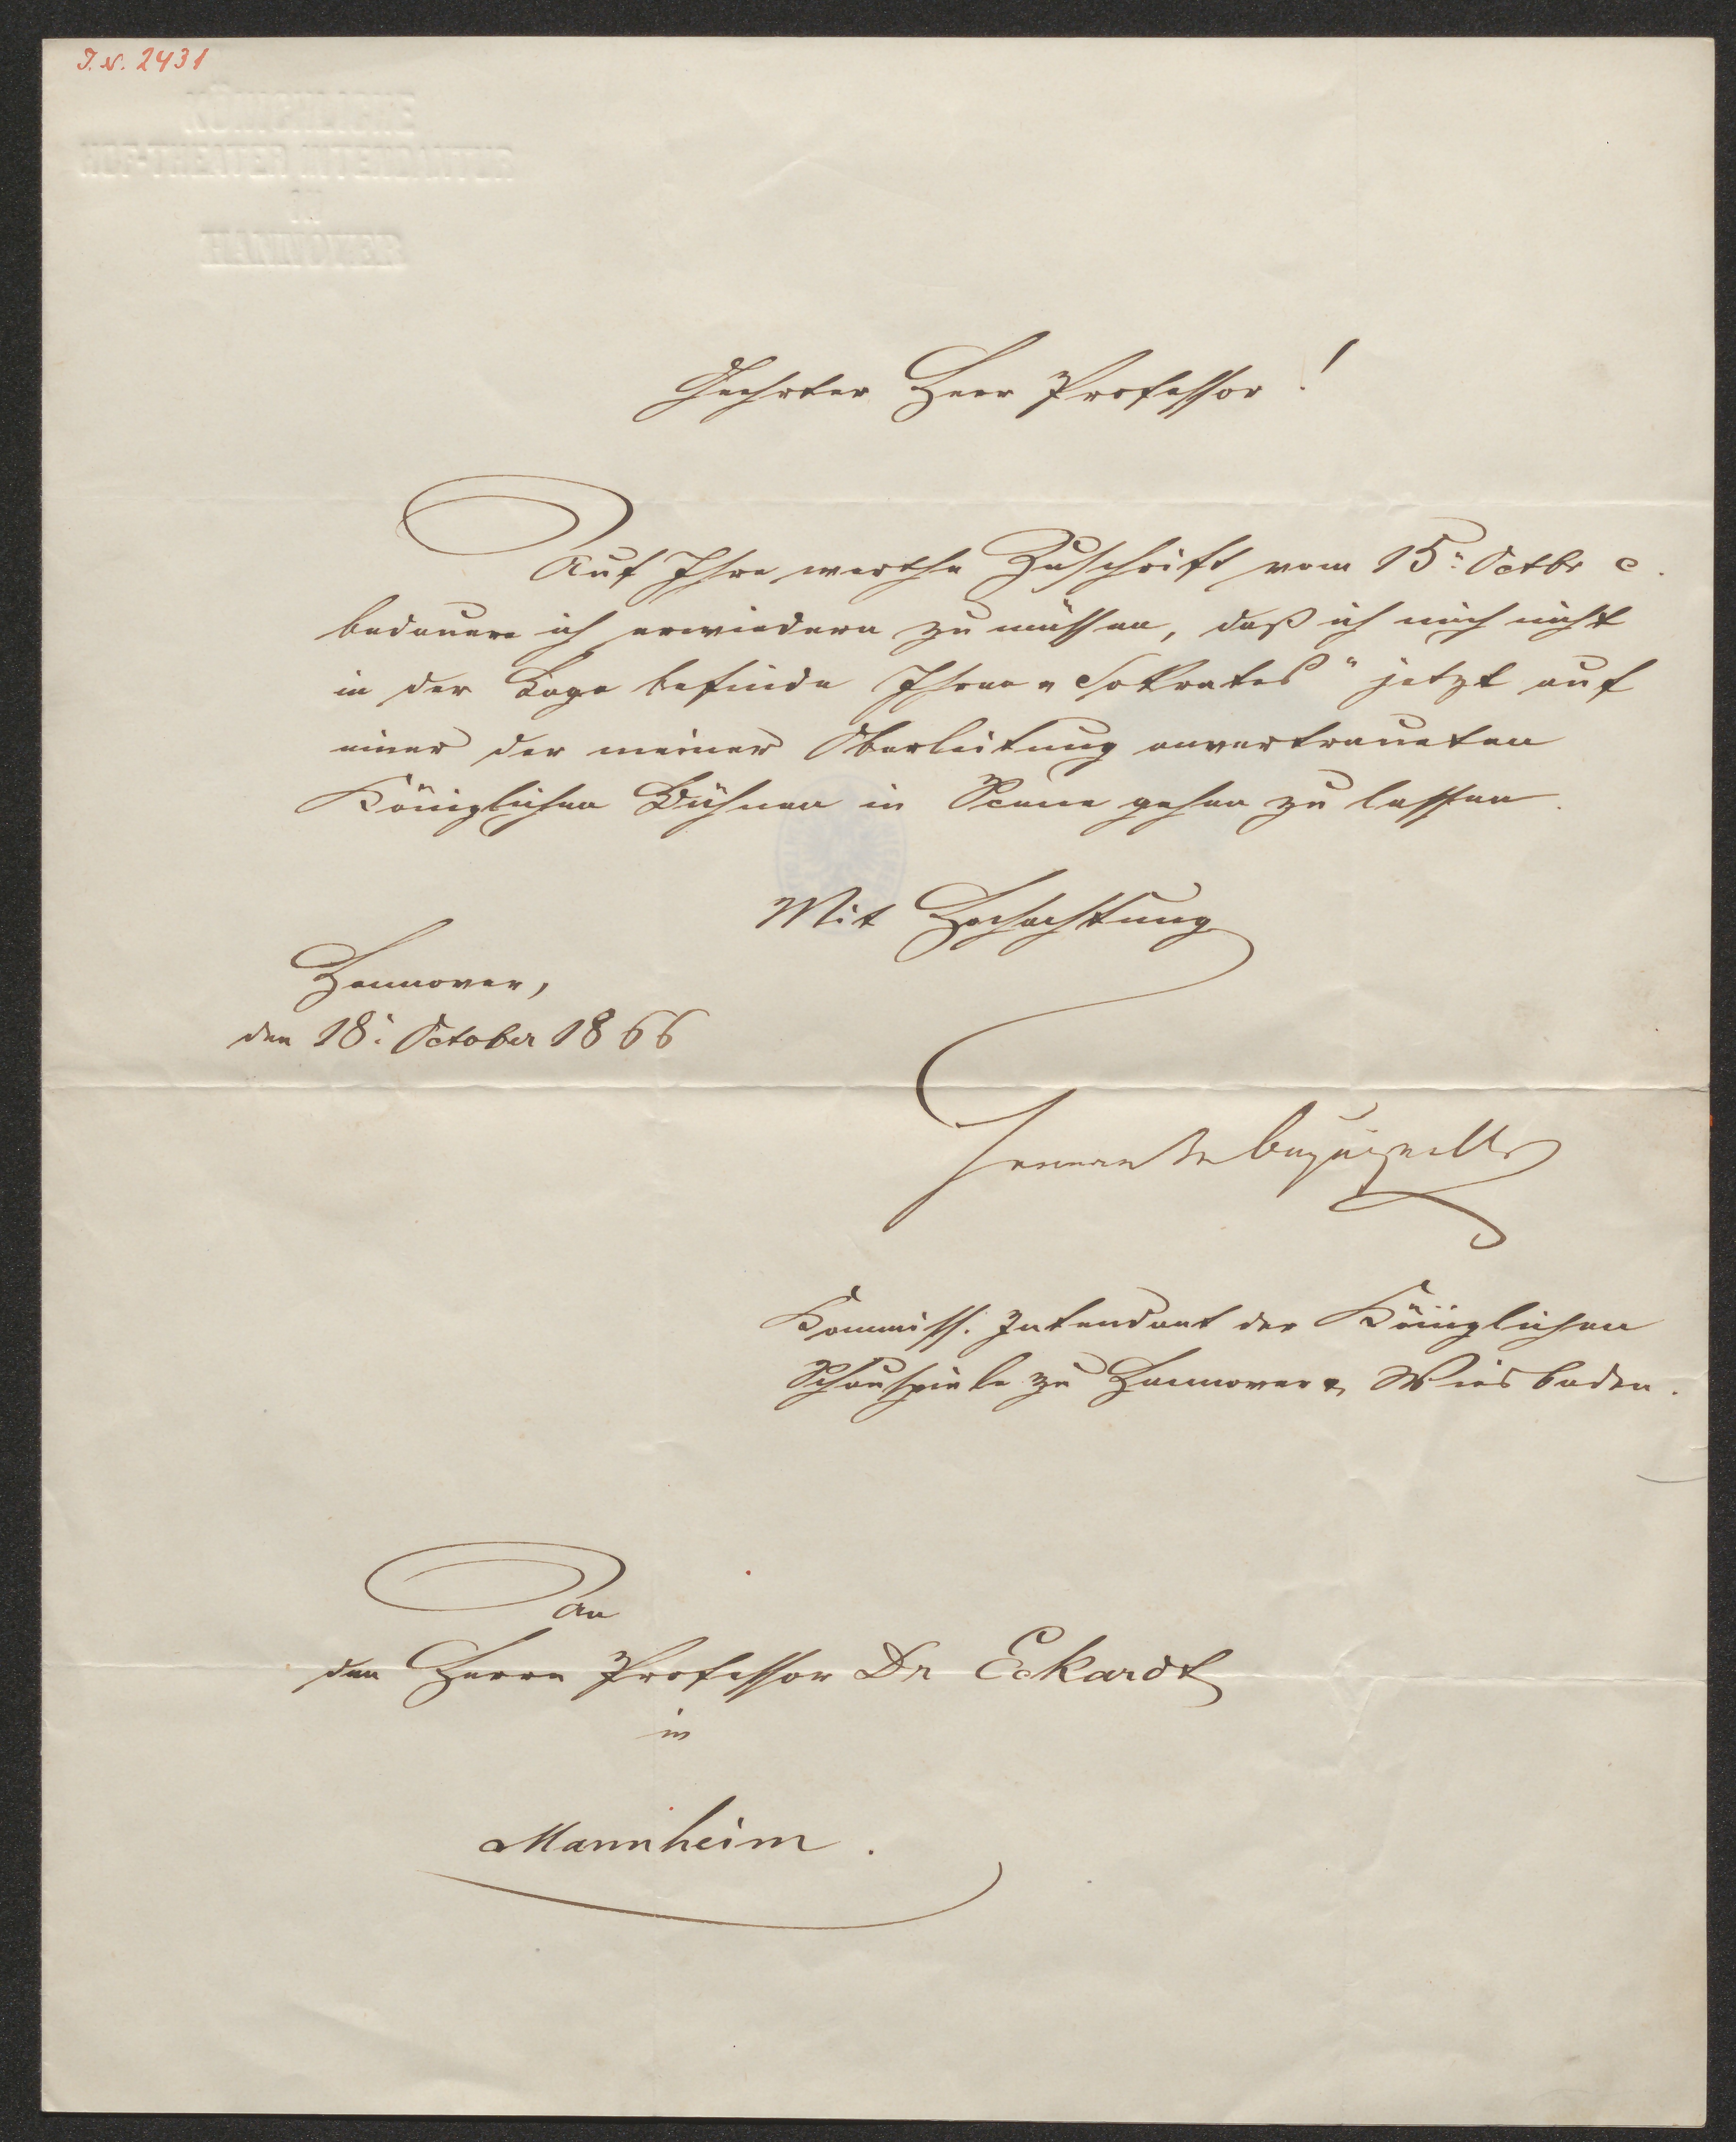 I.N. 2431
KÖNIGLICHE
HOF-THEATER INTENDANTUR
HANNOVER
Geehrter Herr Professor!
Auf Ihre werthe Zuschrift vom 15: Octbr c.
bedauere ich erwiedern zu müssen, daß ich mich nicht
in der Lage befinde Ihren „Sokrates" jetzt auf
einer der meiner Oberleitung anvertraueten
Königlichen Bühnen in Scene gehen zu lassen.
Mit Hochachtung
Hannover,
den 18: October 1866
Kommiss. Intendant der Königlichen
Schauspiele zu Hannover & Wiesbaden.
An
den Herrn Professor Dr Eckardt
in
Mannheim.